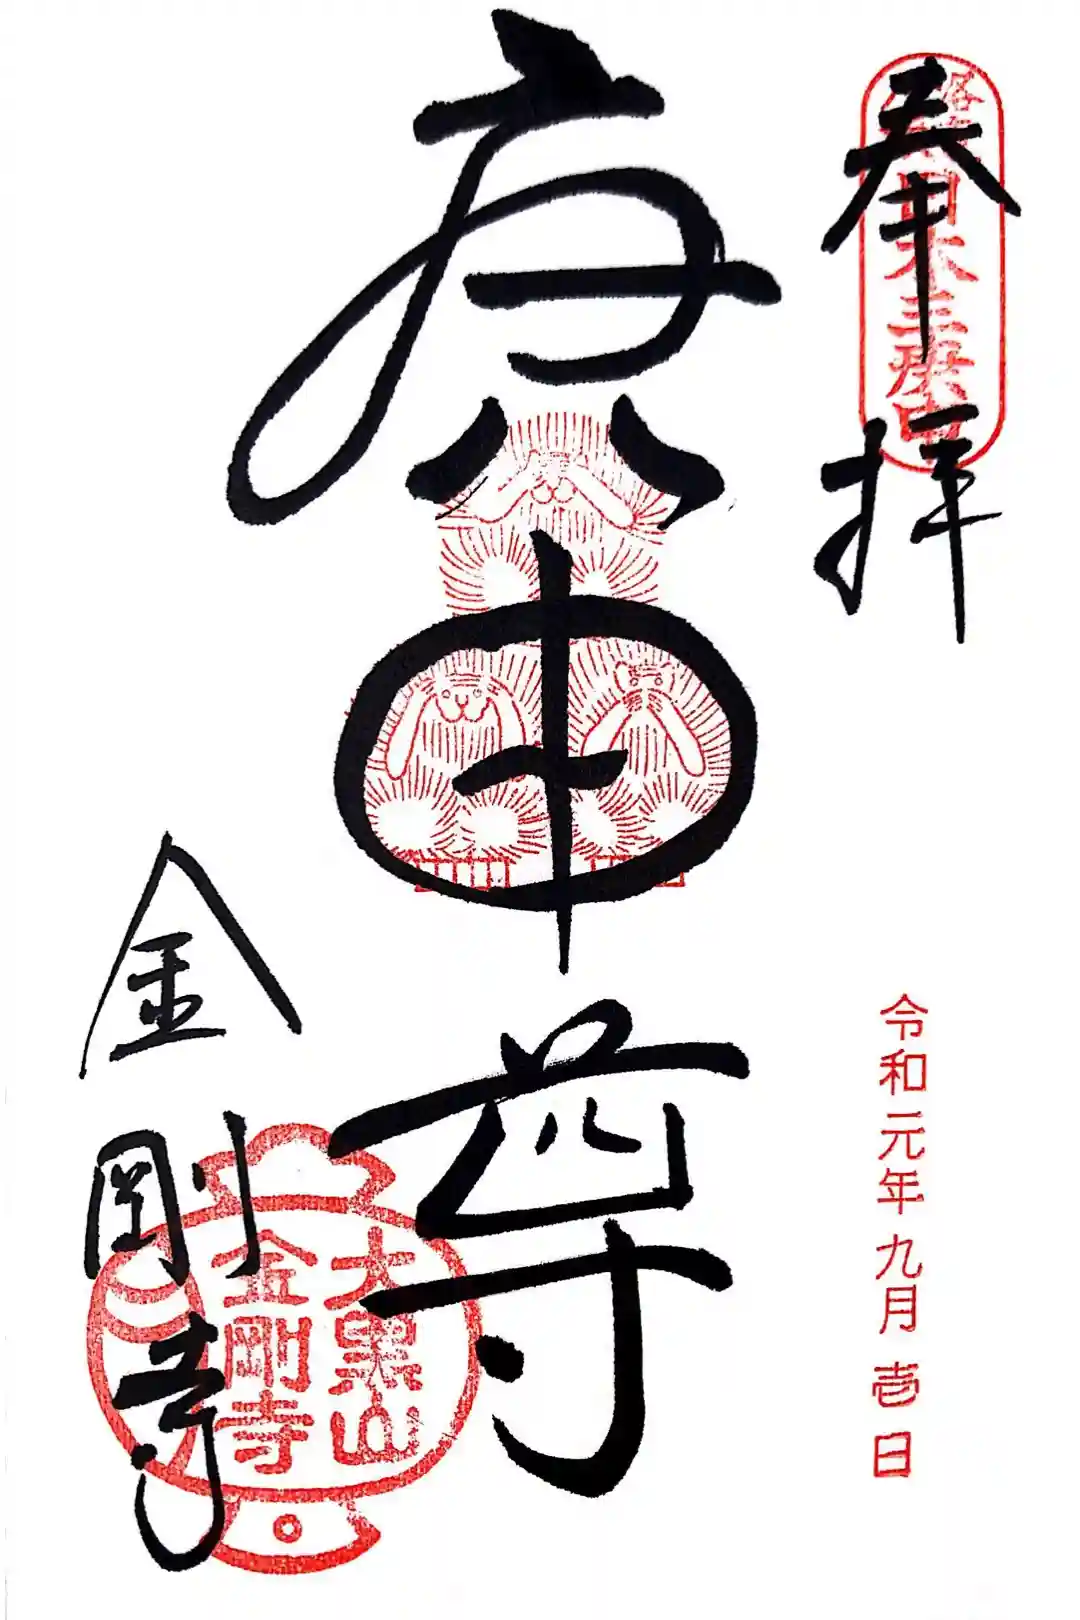 奉拝
日本三庚申
庚申尊
令和元年九月壱日
金剛寺
大黒山
金剛寺